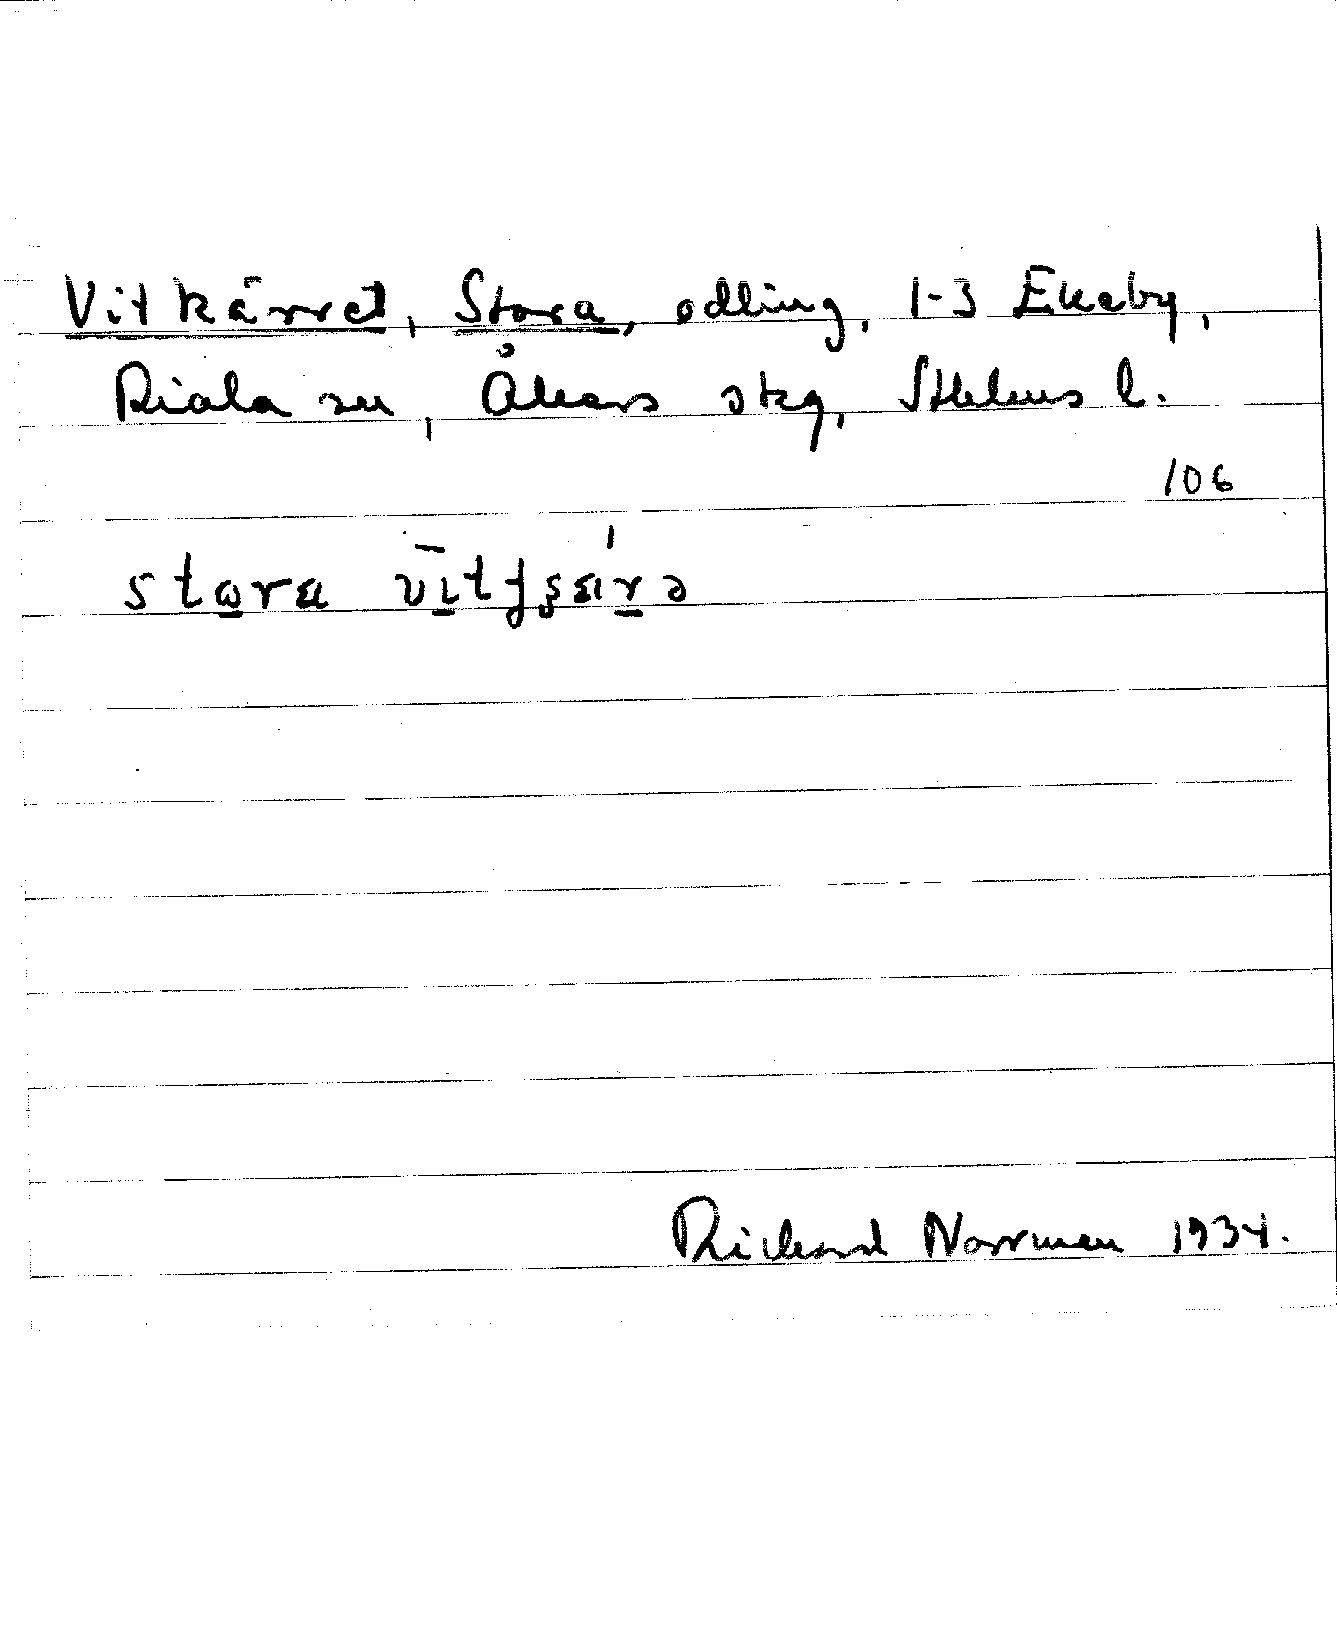 Vitkärret, Stora, odling, 1-3 Ekeby,
Riala sn, Åkers skg, Sthlms l.
106
stωra vītʃʂärə
Rickard Norrman 1934.